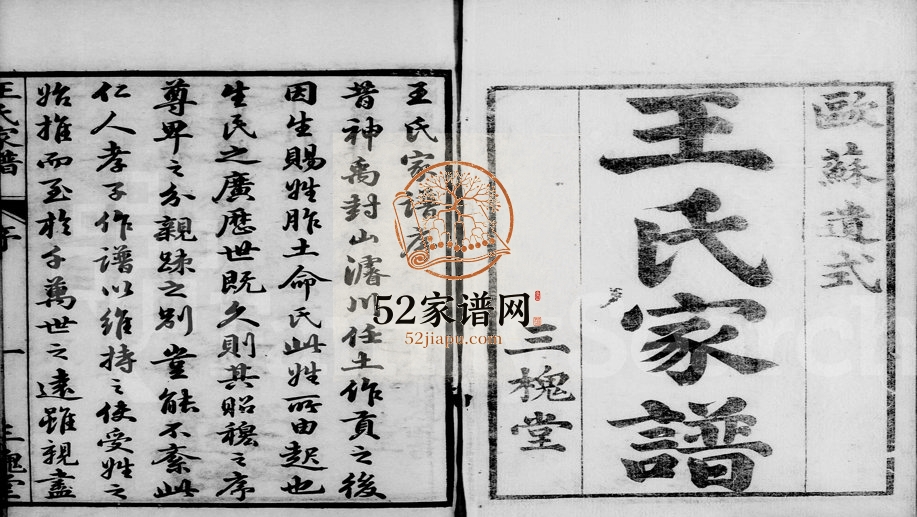 歐蘇遺式
王氏家譜
三槐堂
王氏家譜序
昔神禹封山濬川任土作貢之後
因生賜姓胙土命氏此姓所由起也
生民之廣歷世既久則其昭穆之序
尊卑之分親疎之别豈能不紊此
仁人孝子作譜以維持之使受姓之
始推而至於千萬世之遠雖親盡
王氏家譜
序
一
三槐堂
52家谱网
52jiapu.com